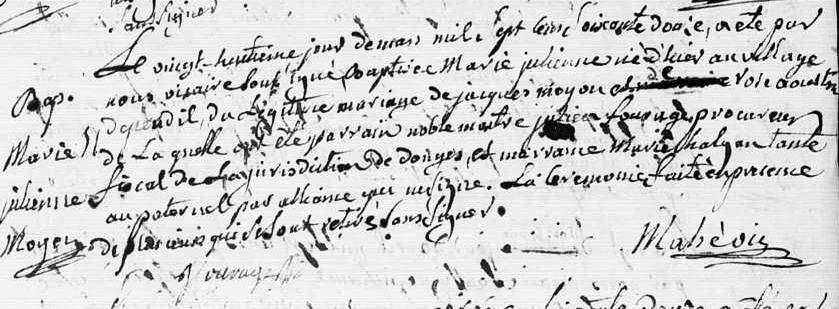 sans signer
Le vingt-huitieme jour de mars mil sept cens soixante douze, a eté par
Bap. nous vicaire soussigné, Baptisée Marie julienne née d'hier au village
du Légitime mariage de jacques moyon et de
Marie de Laquelle a été parrain noble maitre julien procureur
julienne fiscal de la jurisdiction de donges, et marraine Marie halgan tante
Moyon au paternel par alliance qui ne signe. La Ceremonie faite en presence
de plusieurs qui se sont retirés sans signer.
Mahé vic